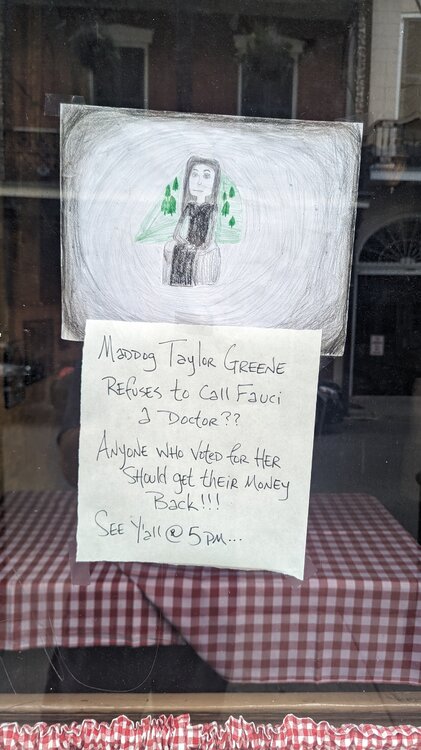 Maddog Taylor Greene
Refuses to Call Fauci
a Doctor??
Anyone who voted for Her
Should get their Money
Back!!!
See Y'all @ 5 pm...